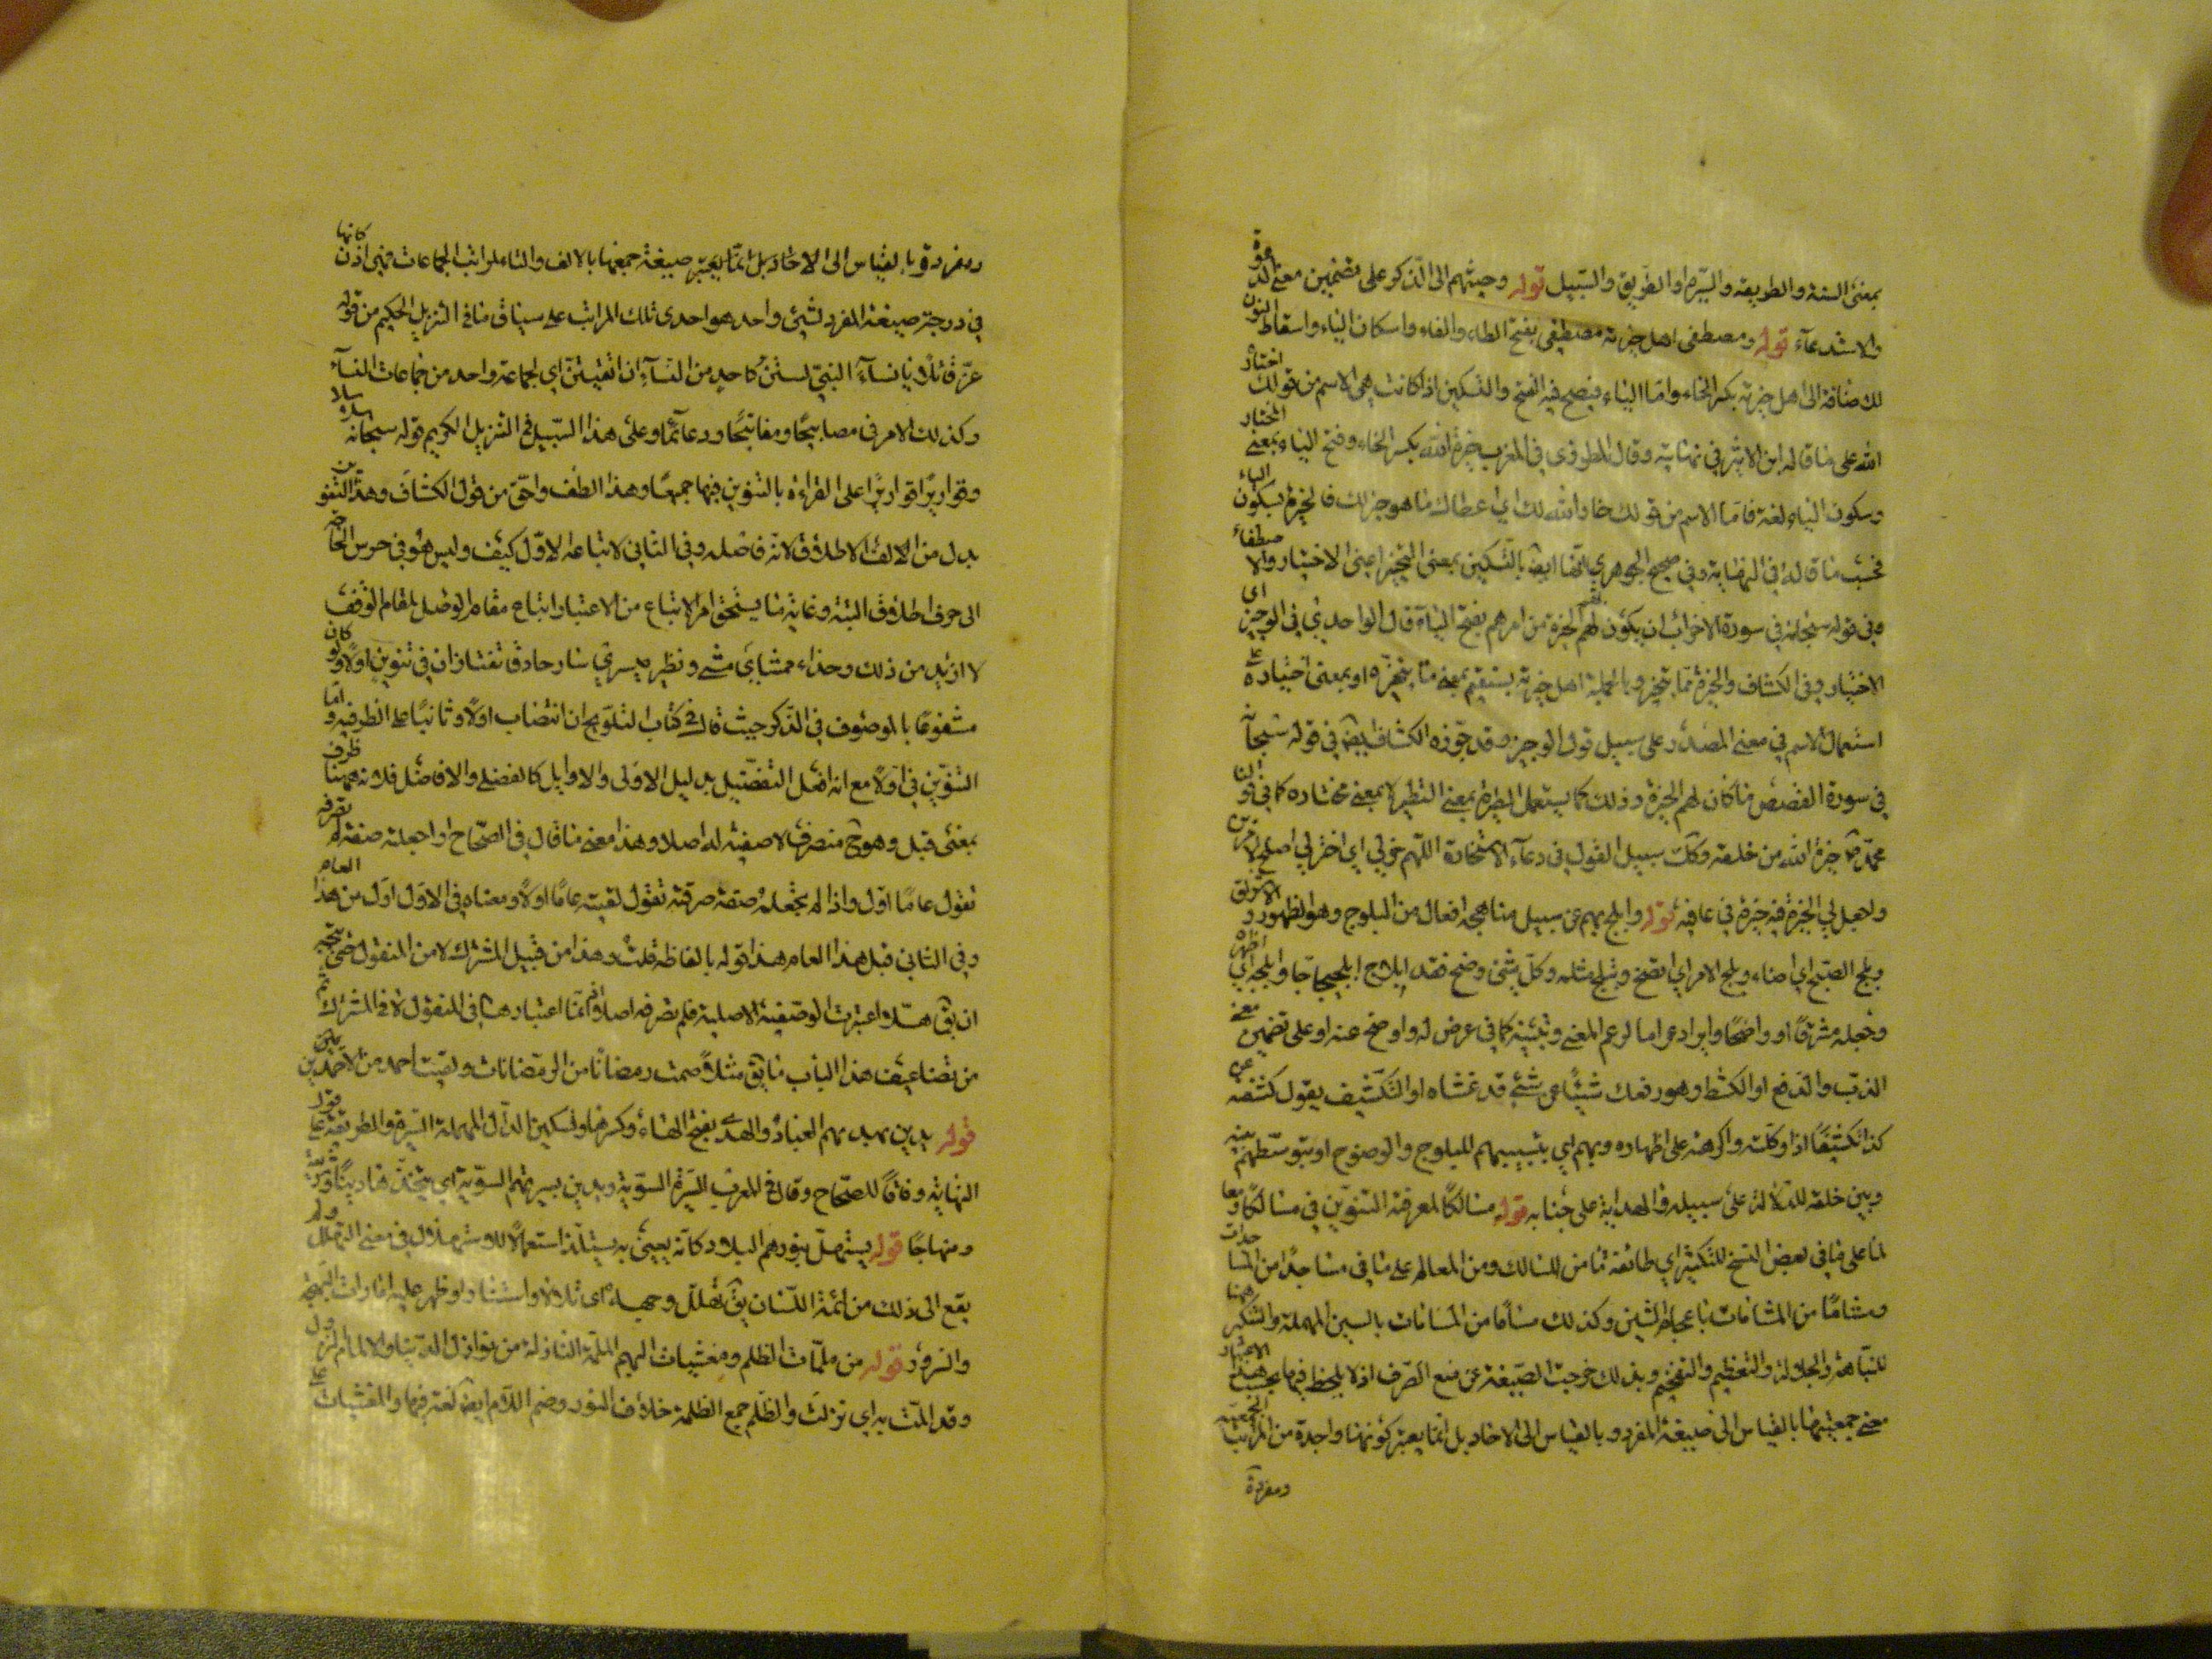 بمعنى السنة والطريقة والسيرة او الطريق والسبيل قوله وحيثهم الى الذكر على تضمين معنى الدعوة
والاستدعاء قوله ومصطفى اهل خيرته مصطفى بفتح الطاء والفاء واسكان الياء واسقاط النون
للاضافة الى اهل خيرته بكسر الخاء واما الياء فيصح فيه الفتح والتسكين اذا كانت هي الاسم من قولك اختار
الله على ما قاله ابن الاثير في نهايته وقال المطرزي في المغرب خيرة الله بكسر الخاء وفتح الياء بمعنى المختار
وسكون الياء لغة فاما الاسم من قولك خار الله لك اي اعطاك ما هو خير لك فالخيرة بسكون الياء
فحسب ما قاله في النهاية وفي صحيح الجوهري انها ايضا بالتسكين بمعنى التخير اعني الاختيار والاصطفاء
وفي قوله سبحانه في سورة الاحزاب ان يكون لهم الخيرة من امرهم بفتح الياء قال الواحدي في الوجيز اي
الاختيار وفي الكشاف والخيرة ما يتخير وبالجملة اهل خيرته يستقيم بمعنى ما يتخيره او بمعنى اختياره على
استعمال الاسم في معنى المصدر وعلى سبيل قول الوجيز وقد جوزه الكشاف ايضا في قوله سبحانه
في سورة القصص ما كان لهم الخيرة وذلك كما يستعمل الطيرة بمعنى التطير لا بمعنى مختاره كما في قولنا
محمد ص خيرة الله من خلقه وكك سبيل القول في دعاء الاستخارة اللهم خر لي اي اختر لي اصلح الامرين
واجعل لي الخيرة فيه خيرة في عافية قوله وابلج بهم عن سبيل مناهجه افعال من البلوج وهو الظهور والاشراق
وبلج الصبح اي اضاء وبلج الامر اي اتضح وتبلج مثله وكل شيء وضح فقد ابلاج ابليجاجا وابلجه اي اظهره
وجعله مشرقا او واضحا وايراد عن اما لزعم المعنى وتبيينه كما في عرض له واوضح عنه او على تضمين معنى
الذب والدفع او الكشط وهو رفعك شيئا عن شيء قد غشاه او التكشيف يقول كشفته عن
كذا تكشيفا اذا وكلته واكرهته على اظهاره وبهم اي بتسبيبهم للبلوج والوضوح او بتوسطهم بينه
وبين خلقه للدلالة على سبيله والهداية على جنابه قوله مسالكا لمعرفته التنوين في مسالكا ومعا
لما على ما في بعض النسخ للتكثير اي طائفة ما من المسالك ومن المعالم على ما في مساجدا من المساجدات
ومشاما من المشامات باعجام الشين وكذلك مساما من المسامات بالسين المهملة والتنكير ههنا
للنباهة والجلالة والتعظيم والتفخيم وبذلك خرجت الصيغة عن منع الصرف اذ لا يلحظ فيها بحسب هذا الاعتبار
معنى جمعيتها بالقياس الى صيغة المفرد وبالقياس الى الاحاد بل انما يعتبر كونها واحدة من المراتب الجمعية
ومفردة
ومفردة بالقياس الى الاحاد بل انما يعتبر صيغة جمعها بالالف والتاء لمراتب الجماعات فهي اذن كانها
في درجة صيغة المفرد لشيء واحد هو احدى تلك المراتب على سياق ما في التنزيل الحكيم من قوله
عز قائلا يا نساء النبي لستن كاحد من النساء ان اتقيتن اي لجماعة واحدة من جماعات النساء
وكذلك الامر في مصابيحا ومفاتيحا ودعائما وعلى هذا السبيل في التنزيل الكريم قوله سبحانه سلاسلا
وقواريرا قواريرا على القراءة بالتنوين فيها جميعا وهذا الطف واحق من قول الكشاف وهذا التنوين
بدل من الالف الاطلاق لانه فاصلة وفي الثاني لاتباعه الاول كيف وليس هو في حرس الحاجة
الى حرف اطلاق البتة وغاية ما يستحق امر الاتباع من الاعتبار اتباع مقام الوصل لمقام الوقف
لا ازيد من ذلك وحذاء ممشاي مشى ونظير مسيري سار حاذق تفتازان في تنوين اولا ولو كان
مشفوعا بالموصوف في الذكر حيث قال في كتاب التلويح ان انتصاب اولا وثانيا على الظرفية واما
التنوين في اولا مع انه افعل التفضيل بدليل الاولى والاوايل كالفضلى والافاضل فلانه ههنا ظرف
بمعنى قبل وهو ح منصرف لا وصفية له اصلا وهذا معنى ما قال في الصحاح اذا جعلته صفة لم تصرفه
تقول عاما اول واذا لم تجعله صفة صرفته تقول لقيته عاما اولا ومعناه في الاول اول من هذا العام
وفي الثاني قبل هذا العام هذا قوله بالفاظه قلت وهذا من قبيل المشترك لا من المنقول حتى يتجه
ان يق هلا اعتبرت الوصفية الاصلية فلم تصرفه اصلا وانما اعتبارها في المنقول لا في المشترك ثم
من تضاعيف هذا الباب ما يق مثلا صمت رمضانا من الرمضانات ولقيت احمد من الاحمدين
قوله يدين بهديهم العباد والهدى بفتح الهاء وكسرها وتسكين الدال المهملة السيرة والطريقة على قول
النهاية وفاقا للصحاح وقال في المغرب السيرة السوية ويدين بسيرتهم السوية اي يتخذها دينا وشرعة
ومنهاجا قوله يستهل بنورهم البلاد كانه يعنى به يستلذ استعمالا للاستهلال في معنى التهلل ولم
يقع الى ذلك من ائمة اللسان يق تهلل وجهه اى تلالا واستنار وظهر عليه امارات البهجة
والسرور قوله من ملمات الظلم ومغشيات البهم الملمة النازلة من نوازل الدنيا والالمام النزول
وقد المت به اي نزلت والظلم جمع الظلمة خلاف النور وضم اللام ايضا لغة فيها والمغشيات على